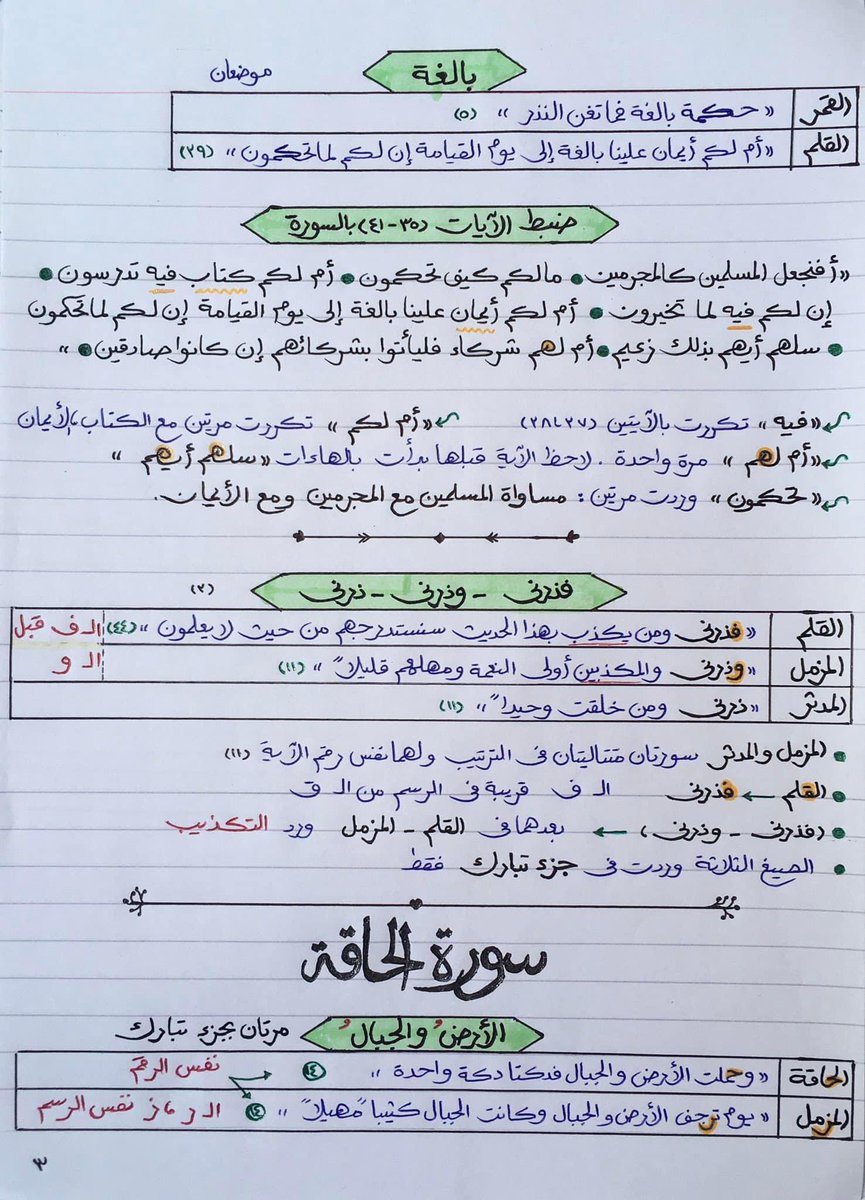 بالغة موضعان
القمر « حكمة بالغة فما تغن النذر » (٥)
القلم « أم لكم أيمان علينا بالغة إلى يوم القيامة إن لكم لما تحكمون » (٣٩)
ضبط الآيات (٣٥-٤١) بالسورة
« أفنجعل المسلمين كالمجرمين • مالكم كيف تحكمون • أم لكم كتاب فيه تدرسون •
إن لكم فيه لما تخيرون • أم لكم أيمان علينا بالغة إلى يوم القيامة إن لكم لما تحكمون
• سلهم أيهم بذلك زعيم • أم لهم شركاء فليأتوا بشركائهم إن كانوا صادقين • »
« فيه » تكررت بالآيتين (٣٧، ٣٨) « أم لكم » تكررت مرتين مع الكتاب، الأيمان
« أم لهم » مرة واحدة . لاحظ الآية قبلها بدأت بالهاءات « سلهم أيهم »
« تحكمون » وردت مرتين : مساواة المسلمين مع المجرمين ومع الأيمان .
فذرنى - وذرنى - ذرنى (٣)
القلم « فذرنى ومن يكذب بهذا الحديث سنستدرجهم من حيث لا يعلمون » (٤٤) الـ ف قبل
المزمل « وذرنى والمكذبين أولى النعمة ومهلهم قليلاً » (١١) الـ و
المدثر « ذرنى ومن خلقت وحيداً » (١١)
• المزمل والمدثر سورتان متتاليتان فى الترتيب ولهما نفس رقم الآية (١١)
• القلم ← فذرنى الـ ف قريبة فى الرسم من الـ ق
• (فذرنى - وذرنى) ← بعدهما فى القلم - المزمل ورد التكذيب
• الصيغ الثلاثة وردت فى جزء تبارك فقط
سورة الحاقة
الأرضُ والجبالُ مرتان بجزء تبارك
الحاقة « وحملت الأرض والجبال فدكتا دكة واحدة » ١٤ نفس الرقم
المزمل « يوم ترجف الأرض والجبال وكانت الجبال كثيباً مهيلاً » ١٤ الـ ر، ز نفس الرسم
٣